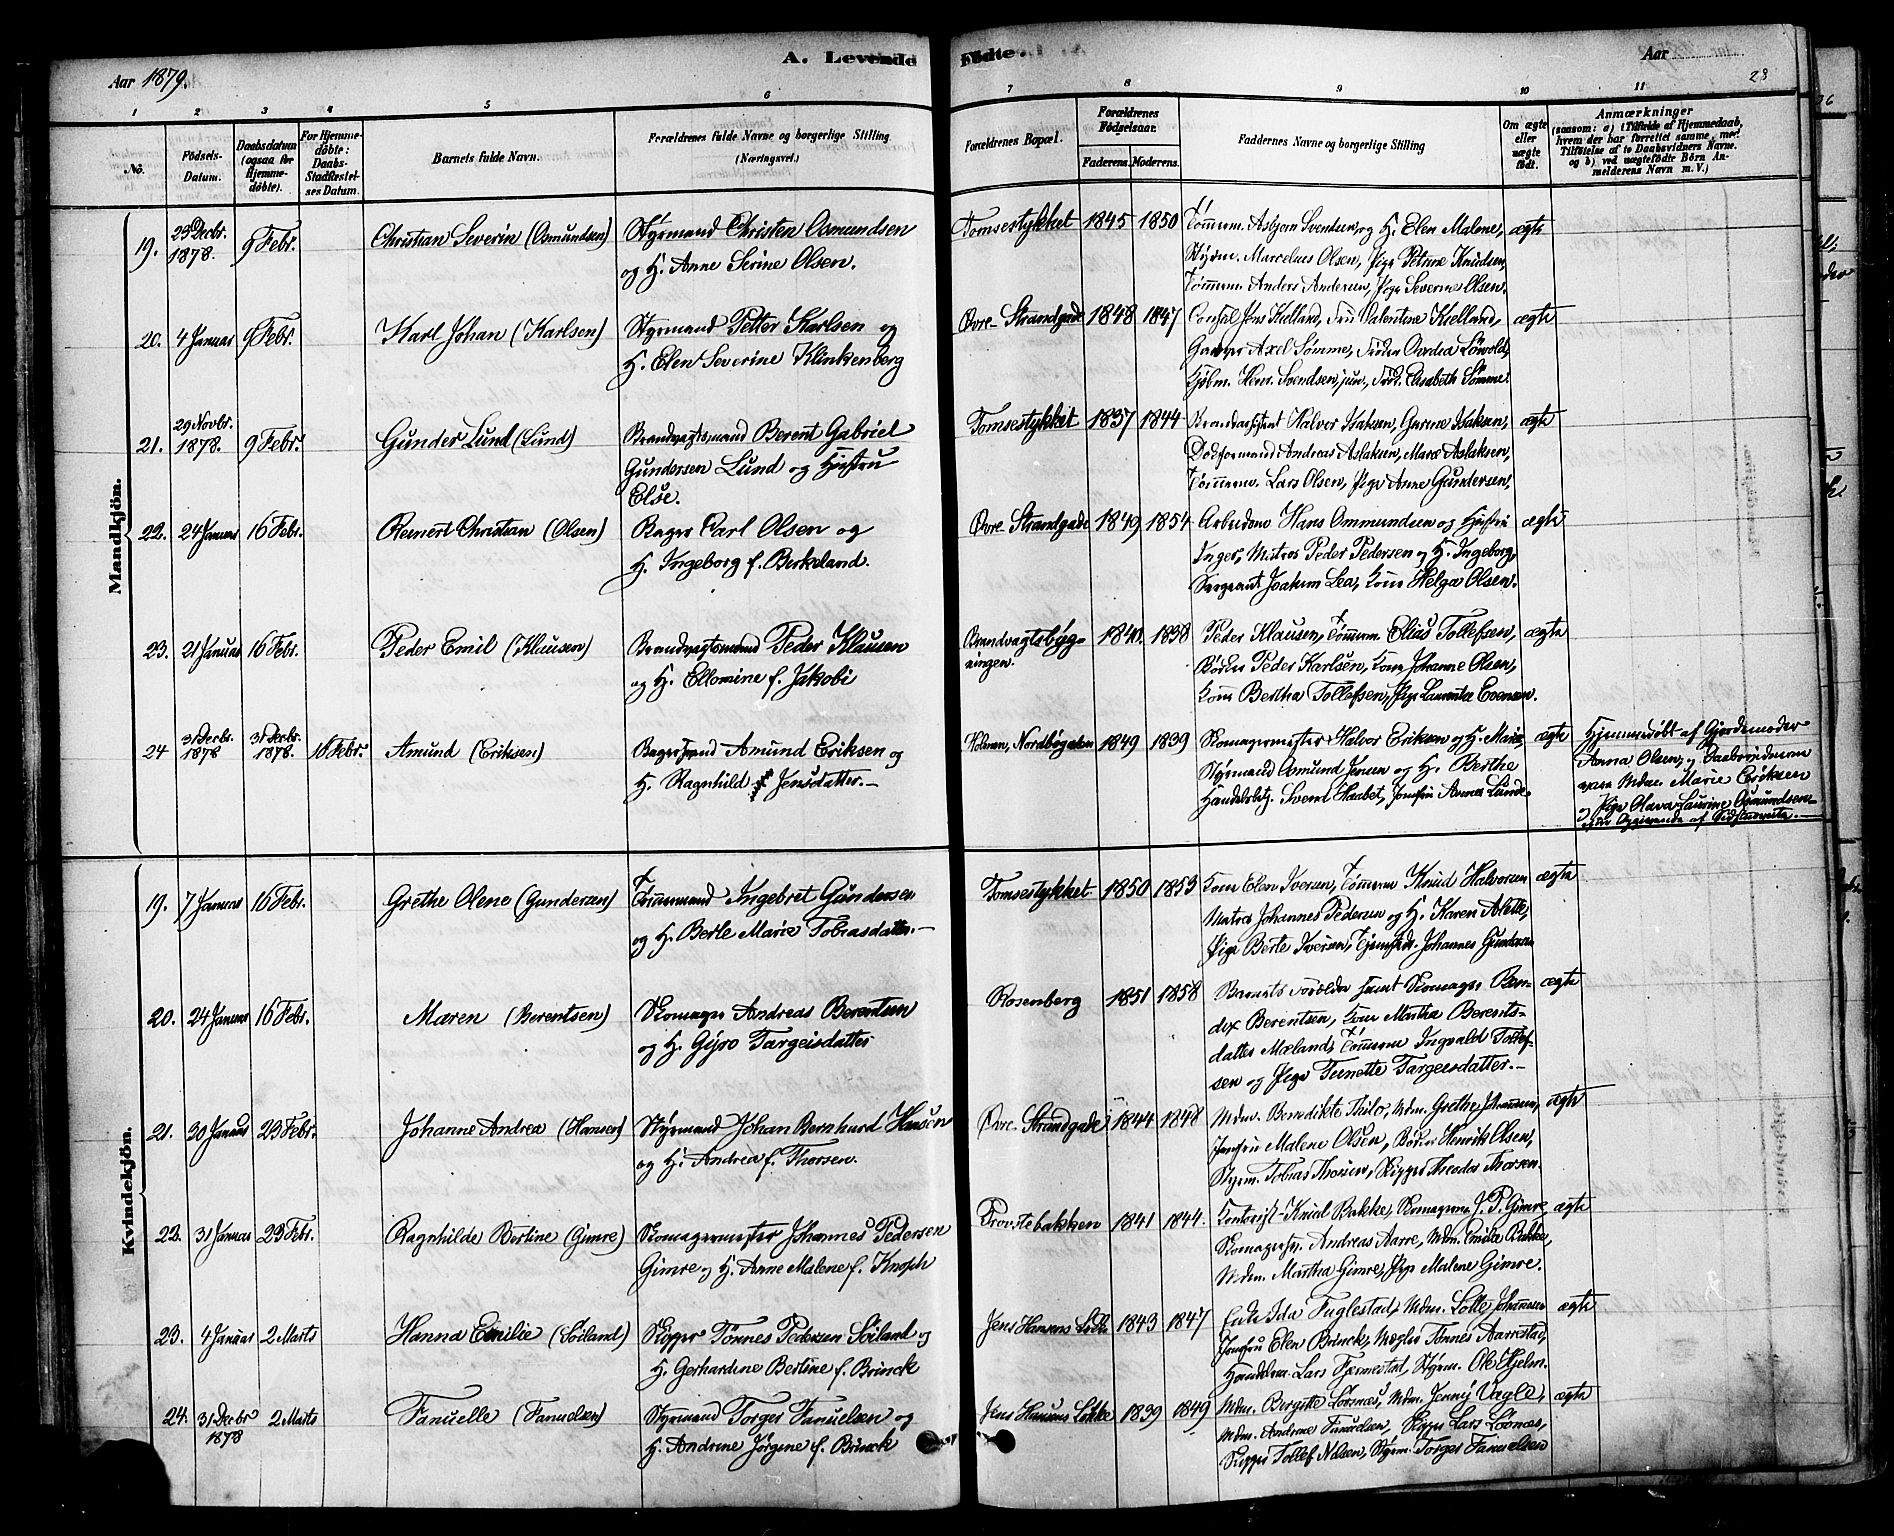 Aar 1879.
A. Levende Fødte.
Aar
28
1 2 3 4 5 6 7 8 9 10 11
No. Fødsels-Datum. Daabsdatum (ogsaa for Hjemmedøbte). For Hjemmedøbte: Daabs-Stadfæstelses Datum. Barnets fulde Navn. Forældrenes fulde Navne og borgerlige Stilling (Næringsvei). Forældrenes Bopæl. Forældrenes Fødselsaar. Faderens. Moderens. Faddernes Navne og borgerlige Stilling Om ægte eller uægte født. Anmærkninger (saasom: a) i Tilfælde af Hjemmedaab, hvem der har forrettet samme, med Tilføielse af to Daabsvidners Navne. og b) ved uægtefødte Børn Anmelderens Navn m. V.)
Mandkjön.
19. 23 Decbr. 1878. 9 Febr. Christian Severin (Osmundsen) Styrmand Christen Osmundsen Tomsestykket 1845 1850 Tømm. Asbjørn Svendsen, og H. Elen Malene, ægte
og H. Anne Serine Olsen. Styrm. Marcelius Olsen, Pige Petrine Knudsen,
Tømmerm. Anders Andersen, Pige Severine Olsen.
20. 4 Januar 9 Febr. Karl Johan (Karlsen) Styrmand Petter Karlsen og Øvre Strandgade 1848 1847 Consul Jens Kielland, Fru Valentine Kielland, ægte
H. Elen Severine Klinkenberg Axel Sømme, Frøken
Kjøbm. Henr. Svendsen, jun, Frøk. Elisabeth Sømme.
21. 29 Novbr. 1878. 9 Febr. Gunder Lund (Lund) Brandvagtsmand Berent Gabriel Tomsestykket 1837 1844 Brandassistent Halvor Isaksen, Gurine Isaksen, ægte
Gundersen Lund og Hustru Andreas Aslaksen, Maré Aslaksen,
Else. Tømmerm. Lars Olsen, Pige Anne Gundersen,
22. 24 Januar 16 Febr. Reinert Christian (Olsen) Bager Carl Olsen og Øvre Strandgade 1849 1854 Hans Ommundsen og Hustru ægte
H. Ingeborg f. Berkeland. Inger, Matros Peder Pedersen og H. Ingeborg,
Sergeant Joakim Lea, Kone Helga Olsen.
23. 21 Januar 16 Febr. Peder Emil (Klausen) Brandvagtsmand Peder Klausen Brandvagtsbyg- 1840. 1838 Peder Klausen, Tømm. Elias Tollefsen, ægte
og H. Ellomine f. Jakobi ningen. Bødker Peder Karlsen, Kone Johanne Olsen,
Kone Bertha Tollefsen, Pige Laurentze Evensen.
24 31 Decbr. 1878 31 Decbr. 1878. 16 Febr. Amund (Eriksen) Bagersvend Amund Eriksen og Holmen, Nordbøgaten 1849 1839 Skomagermester Halvor Eriksen og H. Marie, ægte Hjemmedøbt af Gjordemoder
H. Ragnhild Jensdatter. Styrmand Osmund Jensen og H. Berthe Anna Olsen, og Daabsvidnerne
Handelsbetj. Svend Haabet, Jomfru Lunde vare Mdm. Marie Eriksen
og Pige Olava Laurine Osmundsen
efter Opgivende af Sidstnævnte.
Kvindekjön.
19. 7 Januar 16 Febr. Grethe Olene (Gundersen) Tømmermand Ingebret Gundersen Tomsestykket 1850 1853 Kone Elen Iversen, Tømmerm Knud Halvorsen ægte
og H. Berte Marie Tobiasdatter. Matros Johannes Pedersen og H. Karen Alette,
Pige Berte Iversen, Johannes Gundersen
20. 24 Januar 16 Febr. Maren (Berentsen) Skomager Andreas Berentsen Rosenberg 1851 1858 Barnets Forældre samt Skomager Ben- ægte
og H. Gyro Targeisdatter dix Berentsen, Kone Martha Berents-
datter Mæland, Tømmerm Ingvald Tollef-
sen og Pige Tunette Targeisdatter.
21. 20 Januar 23 Febr. Johanne Andrea (Hansen) Styrmand Johan Bernhard Hansen Øvre Strandgade 1844 1848 Mdm. Benedikte Thilo, Mdm. Grethe Johannesen, ægte
og H. Andrea f. Thorsen. Jomfru Malene Olsen, Bødker Henrik Olsen,
Styrm. Tobias Thorsen, Skipper Theodor Thorsen.
22. 31 Januar 23 Febr. Ragnhilde Bertine (Gimre) Skomagermester Johannes Pedersen Provstebakken 1841 1844. Kontorist Knud Bakke, Skomagerm. J. P. Gimre, ægte
Gimre og H. Anne Malene f. Knoph Skomagerm. Andreas Aarre, Mdm. Emilie Bakke,
Mdm. Martha Gimre, Pige Malene Gimre.
23. 4 Januar 2 Marts Hanna Emilie (Soiland) Skipper Tønnes Pedersen Soiland og Jens Hansens Løkke 1843 1847 Enke Ida Fuglestad, Mdm. Lotte Johannesen ægte
H. Gerhardine Bertine f. Brinck Jomfru Elen Brinck, Mægler Tønnes Aarrestad,
Handelsm. Lars Tjemestad, Styrm. Ole Hjelm.
24. 31 Decbr 1878 2 Marts Fanuelle (Fanuelsen) Styrmand Torger Fanuelsen og Jens Hansens Løkke 1839 1849 Mdm. Bergitte Lornæs, Mdm. Jenny Vagle, ægte
H. Andrine Jørgine f. Brinck Mdm. Andrine Fanuelsen, Skipper Lars Lornæs,
Skipper Tollef Nilsen, Styrm. Torger Fanuelsen